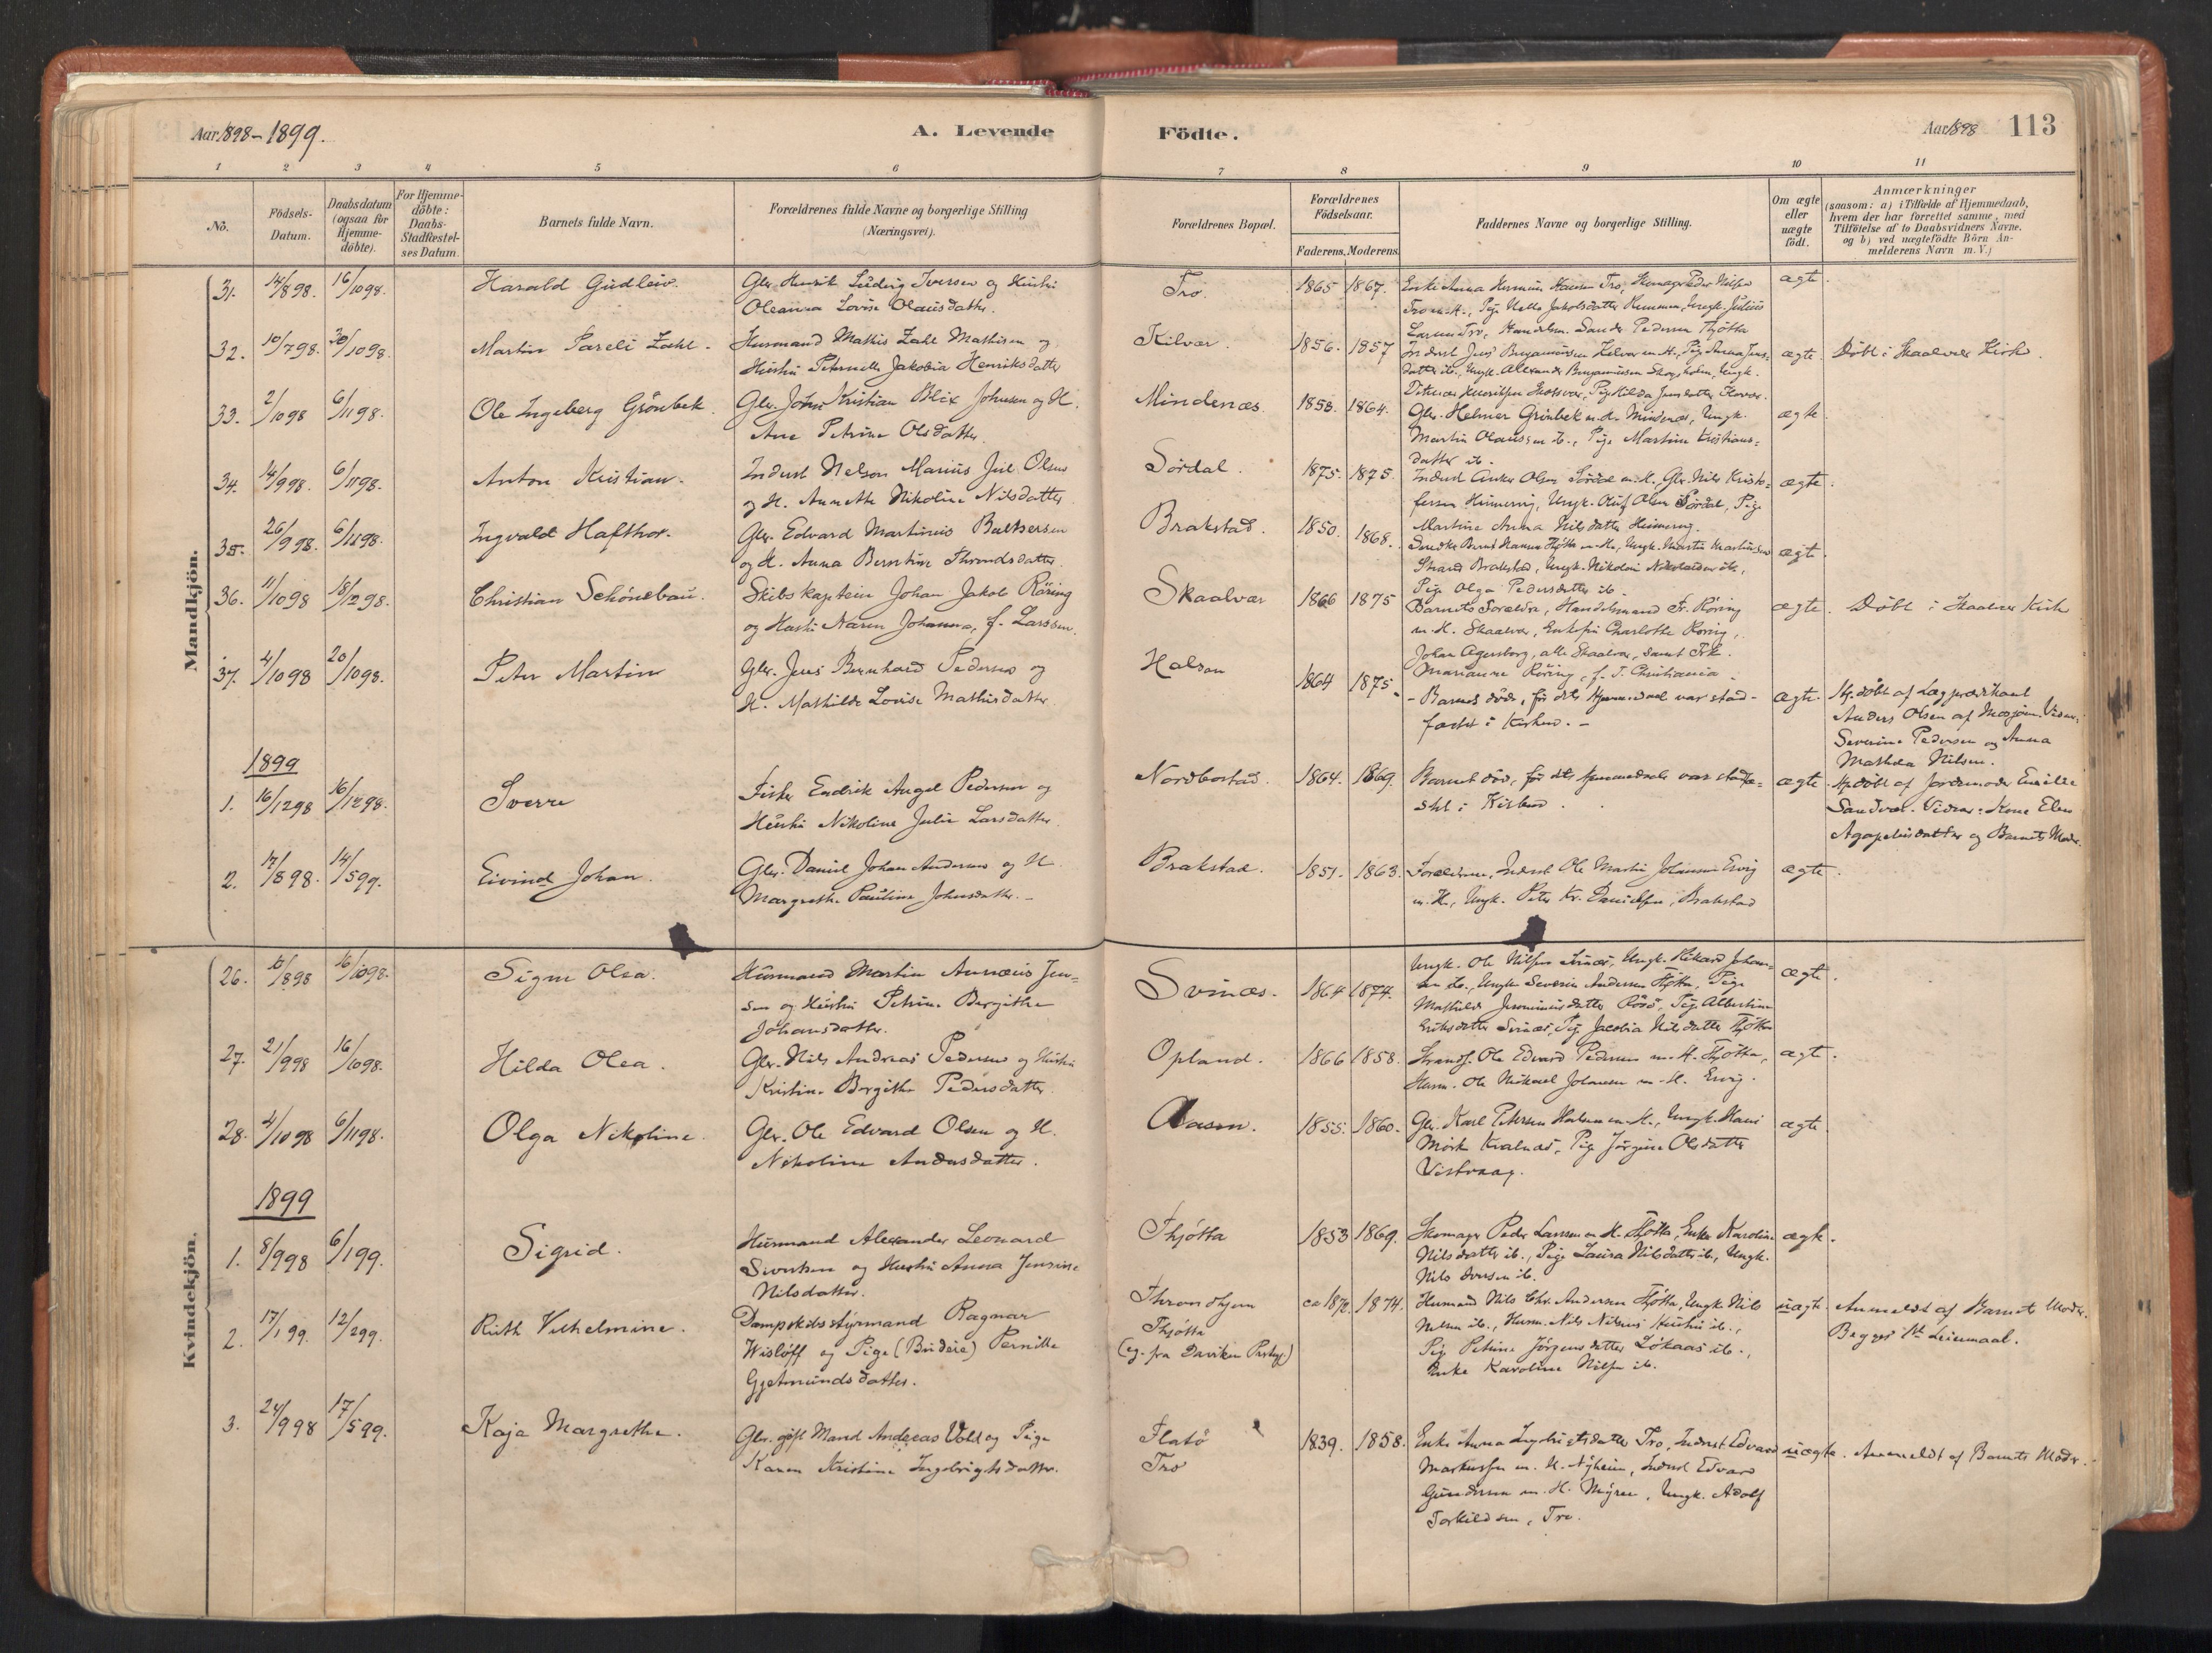 Aar 1898-1899.
A. Levende
Födte.
Aar 1898
113
1 2 3 4 5 6 7 8 9 10 11
No.
Födsels-Datum.
Daabsdatum (ogsaa for Hjemme-döbte).
For Hjemme-döbte: Daabs-Stadfæstel-ses Datum.
Barnets fulde Navn.
Forældrenes fulde Navne og borgerlige Stilling (Næringsvei).
Forældrenes Bopæl.
Forældrenes Födselsaar.
Faderens. Moderens.
Faddernes Navne og borgerlige Stilling.
Om ægte eller uægte födt.
Anmærkninger
(saasom: a) i Tilfælde af Hjemmedaab,
hvem der har forrettet samme, med
Tilföielse af to Daabsvidners Navne,
og b) ved uægtefödte Börn An-
melderens Navn m. V.)
Mandkjön.
31. 14/8 98. 16/10 98. Harald Gudleiv. Gbr. Henrik Ludvig Iversen og Hustru
Oleanna Lovise Olausdatter. Tro. 1865 1867. ægte.
32. 10/7 98. 30/10 98. Martin Pareli Zahl. Husmand Mathis Zahl Mathisen og
Hustru Peternelle Jakobia Henriksdatter Kilvær. 1856. 1857 ægte. Döbt i Skaalvær Kirke.
33. 2/10 98 6/11 98. Ole Ingeberg Grönbek. Gbr. Johan Kristian Blix Johnsen og H.
Ane Petrine Olsdatter. Mindenæs. 1858. 1864. Gbr. Helmer Grönbek m. H. Mindenæs, Ungk.
Martin Olaussen ib., Pige Martine Kristians-
datter ib. ægte.
34. 14/9 98. 6/11 98. Anton Kristian. Inderst Nelson Marius Jul. Olsen
og H. Annette Nikoline Nilsdatter Sördal. 1875. 1875. Inderst Anker Olsen Sördal m. H., Gbr. Nils Kristo-
fersen Hinnering, Ungk. Oluf Olsen Sördal, Pige
Martine Anna Nilsdatter Hinnering. ægte.
35. 26/9 98. 6/11 98. Ingvald Hafthor. Gbr. Edvard Martinus Baltsersen
og H. Anna Berntine Throndsdatter. Brakstad. 1850. 1868. Strand Brakstad, Ungk. Nikolai Nikolaisen ib.,
Pige Olga Pedersdatter ib. ægte.
36. 11/10 98 18/12 98. Christian Schönebau. Skibskaptein Johan Jakob Röring
og Hustru Naren Johanna, f. Larssen. Skaalvær 1866 1875 Barnets Forældre, Handelsmand Fr. Röring
m. H. Skaalvær, Enkefru Charlotte Röring,
Johan Agersborg, alle Skaalvær, samt Frk.
Marianne Röring, f. T. Christiania. ægte. Döbt i Skaalvær Kirke
37. 4/10 98 20/10 98. Peter Martin Gbr. Jens Bernhard Pedersen og
H. Mathilde Lovise Mathisdatter. Halsen 1864 1875. - Barnet döde, för dets Hjemmedaab var stad-
fæstet i Kirken. - ægte. Hj.döbt af Lægprædikant
Anders Olsen af Mosjöen. Vidner:
Severine Pedersen og Anna
Mathea Nilsen.
1899
1. 16/12 98 16/12 98. Sverre Fisker Endrik Angel Pedersen og
Hustru Nikoline Julie Larsdatter. Nordbostad. 1864. 1869. Barnet död, för dets Hjemmedaab var stadfæ-
stet i Kirken. ægte. Hj.döbt af Jordemoder Emilie
Sandvær. Vidner: Kone Elen
Agapetusdatter og Barnets Moder.
2. 17/8 98. 14/5 99. Eivind Johan. Gbr. Daniel Johan Andersen og H.
Margrethe Pauline Johnsdatter. Brakstad. 1851. 1863. Forældrene, Inderst Ole Martin Johansen Ervig
m. H., Ungk. Peter Kr. Danielsen, Brakstad ægte.
Kvindekjön.
26. 10/8 98 16/10 98. Signe Olea. Husmand Martin Annæus Jen-
sen og Hustru Petrine Bergithe
Johansdatter. Svinæs. 1864 1874. Ungk. Ole Nilsen Svinæs, Ungk. Rikard Johan-
sen ib., Ungk. Severin Andersen Thjötta, Pige
Mathilde Jeronimusdatter Rösö, Pige Albertine
Eriksdatter Svinæs, Pige Jacobia Nilsdatter Thjötta ægte.
27. 21/9 98 16/10 98. Hilda Olea. Gbr. Nils Andreas Pedersen og Hustru
Kristine Bergithe Pedersdatter. Opland. 1866 1858. Strands. Ole Edvard Pedersen m. H. Thjötta,
Husm. Ole Mikael Johansen m. H. Ervig. ægte.
28. 4/10 98 6/11 98. Olga Nikoline. Gbr. Ole Edvard Olsen og H.
Nikoline Andersdatter. Aasen. 1855. 1860. Gbr. Karl Petersen Halsen m. H., Ungk. Hans
Mörk Kvalnæs, Pige Jörgine Olsdatter
Vistvaag. ægte.
1899
1. 8/9 98 6/1 99. Sigrid. Husmand Alexander Leonard
Sivertsen og Hustru Anna Jensine
Nilsdatter. Thjötta 1853 1869. Skomager Peder Larssen m. H. Thjötta, Enke Karoline
Nilsdatter ib., Pige Laura Nilsdatter ib., Ungk.
Nils Iversen ib. ægte.
2. 17/1 99. 12/2 99. Ruth Vilhelmine. Dampskibsstyrmand Ragnar
Wislöff og Pige (Budeie) Pernille
Gjetmundsdatter. Throndhjem
Thjötta
(eg. fra Daviken Prstgj.) ca 1872. 1874. Husmand Nils Chr. Andersen Thjötta, Ungk. Nils
Nelsen ib., Husm. Nils Nilsens Hustru ib.,
Pige Petrine Jörgensdatter Lökaas ib.,
Enke Karoline Nilsen ib. uægte. Anmeldt af Barnets Moder.
Begges 1ste Leiermaal.
3. 24/9 98 17/5 99. Kaja Margrethe. Gbr. gift Mand Andreas Vold og Pige
Karen Kristine Ingebrigtsdatter. Flatö
Tro 1839. 1858. Enke Anna Ingebrigtsdatter Tro, Inderst Edvard
Markussen m. H. Nyheim, Inderst Edvard
Gundersen m. H. Myren, Ungk. Adolf
Torkildsen, Tro. uægte. Anmeldt af Barnets Moder.